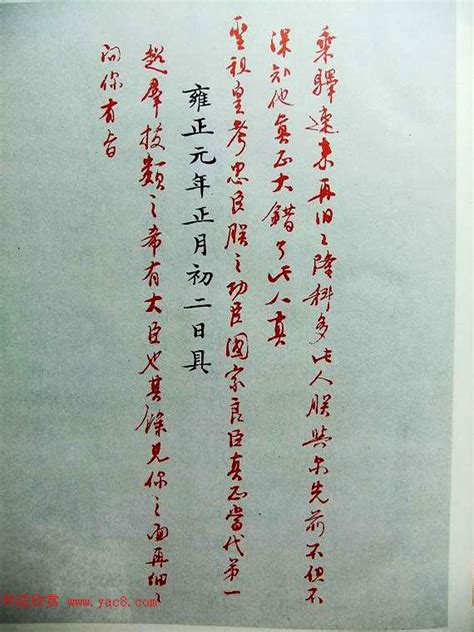 乘驛速來再旧〻隆科多此人朕與尔先前不但不
深知他真正大錯了此人真
聖祖皇考忠臣朕之功臣國家良臣真正當代第一
雍正元年正月初二日具
超羣拔類之希有大臣也其餘見你之面再細〻
問你有旨
欣赏 www.yac8.com